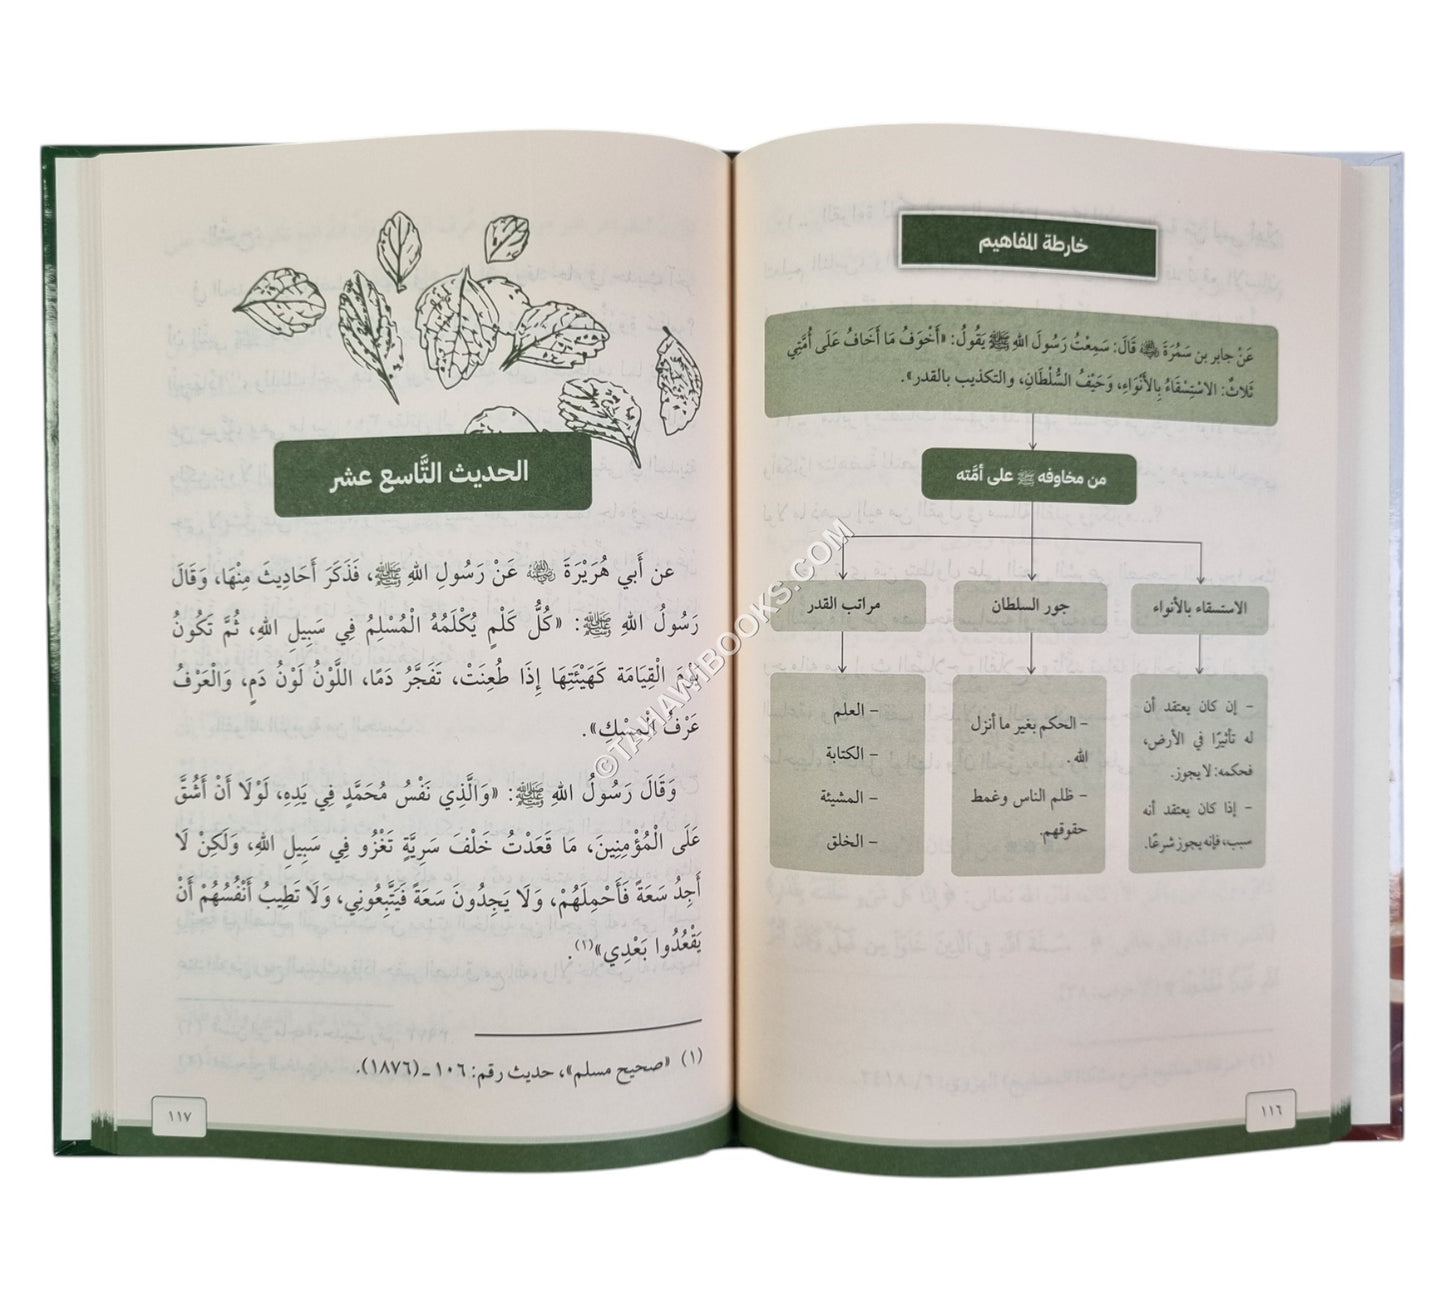 خارطة المفاهيم
عَنْ جابر بن سَمُرَةَ رضي الله عنه قَالَ: سَمِعْتُ رَسُولَ اللهِ ﷺ يَقُولُ: «أَخْوَفُ مَا أَخَافُ عَلَى أُمَّتِي
ثَلاثٌ: الاسْتِسْقَاءُ بِالأَنْوَاءِ، وَحَيْفُ السُّلْطَانِ، والتكذيب بالقدر».
من مخاوفه ﷺ على أمَّته
الاستسقاء بالأنواء
جور السلطان
مراتب القدر
– إن كان يعتقد أن
له تأثيرًا في الأرض،
فحكمه: لا يجوز.
– إذا كان يعتقد أنه
سبب، فإنه يجوز شرعًا.
– الحكم بغير ما أنزل
الله.
– ظلم الناس وغمط
حقوقهم.
– العلم
– الكتابة
– المشيئة
– الخلق
١١٦
الحديث التَّاسع عشر
عن أَبي هُرَيْرَةَ رضي الله عنه عَنْ رَسُولِ اللهِ ﷺ، فَذَكَرَ أَحَادِيثَ مِنْهَا، وَقَالَ
رَسُولُ اللهِ ﷺ: «كُلُّ كَلْمٍ يُكْلَمُهُ الْمُسْلِمُ فِي سَبِيلِ اللهِ، ثُمَّ تَكُونُ
يَوْمَ الْقِيَامَة كَهَيْئَتِهَا إِذَا طُعِنَتْ، تَفَجَّرُ دَمًا، اللَّوْنُ لَوْنُ دَمٍ، وَالْعَرْفُ
عَرْفُ الْمِسْكِ».
وَقَالَ رَسُولُ اللهِ ﷺ: «وَالَّذِي نَفْسُ مُحَمَّدٍ فِي يَدِهِ، لَوْلَا أَنْ أَشُقَّ
عَلَى الْمُؤْمِنِينَ، مَا قَعَدْتُ خَلْفَ سَرِيَّةٍ تَغْزُو فِي سَبِيلِ اللهِ، وَلَكِنْ لَا
أَجِدُ سَعَةً فَأَحْمِلَهُمْ، وَلَا يَجِدُونَ سَعَةً فَيَتَّبِعُونِي، وَلَا تَطِيبُ أَنْفُسُهُمْ أَنْ
يَقْعُدُوا بَعْدِي»(١).
(١) «صحيح مسلم»، حديث رقم: ١٠٦ ـ (١٨٧٦).
١١٧
©TAHAWIBOOKS.COM